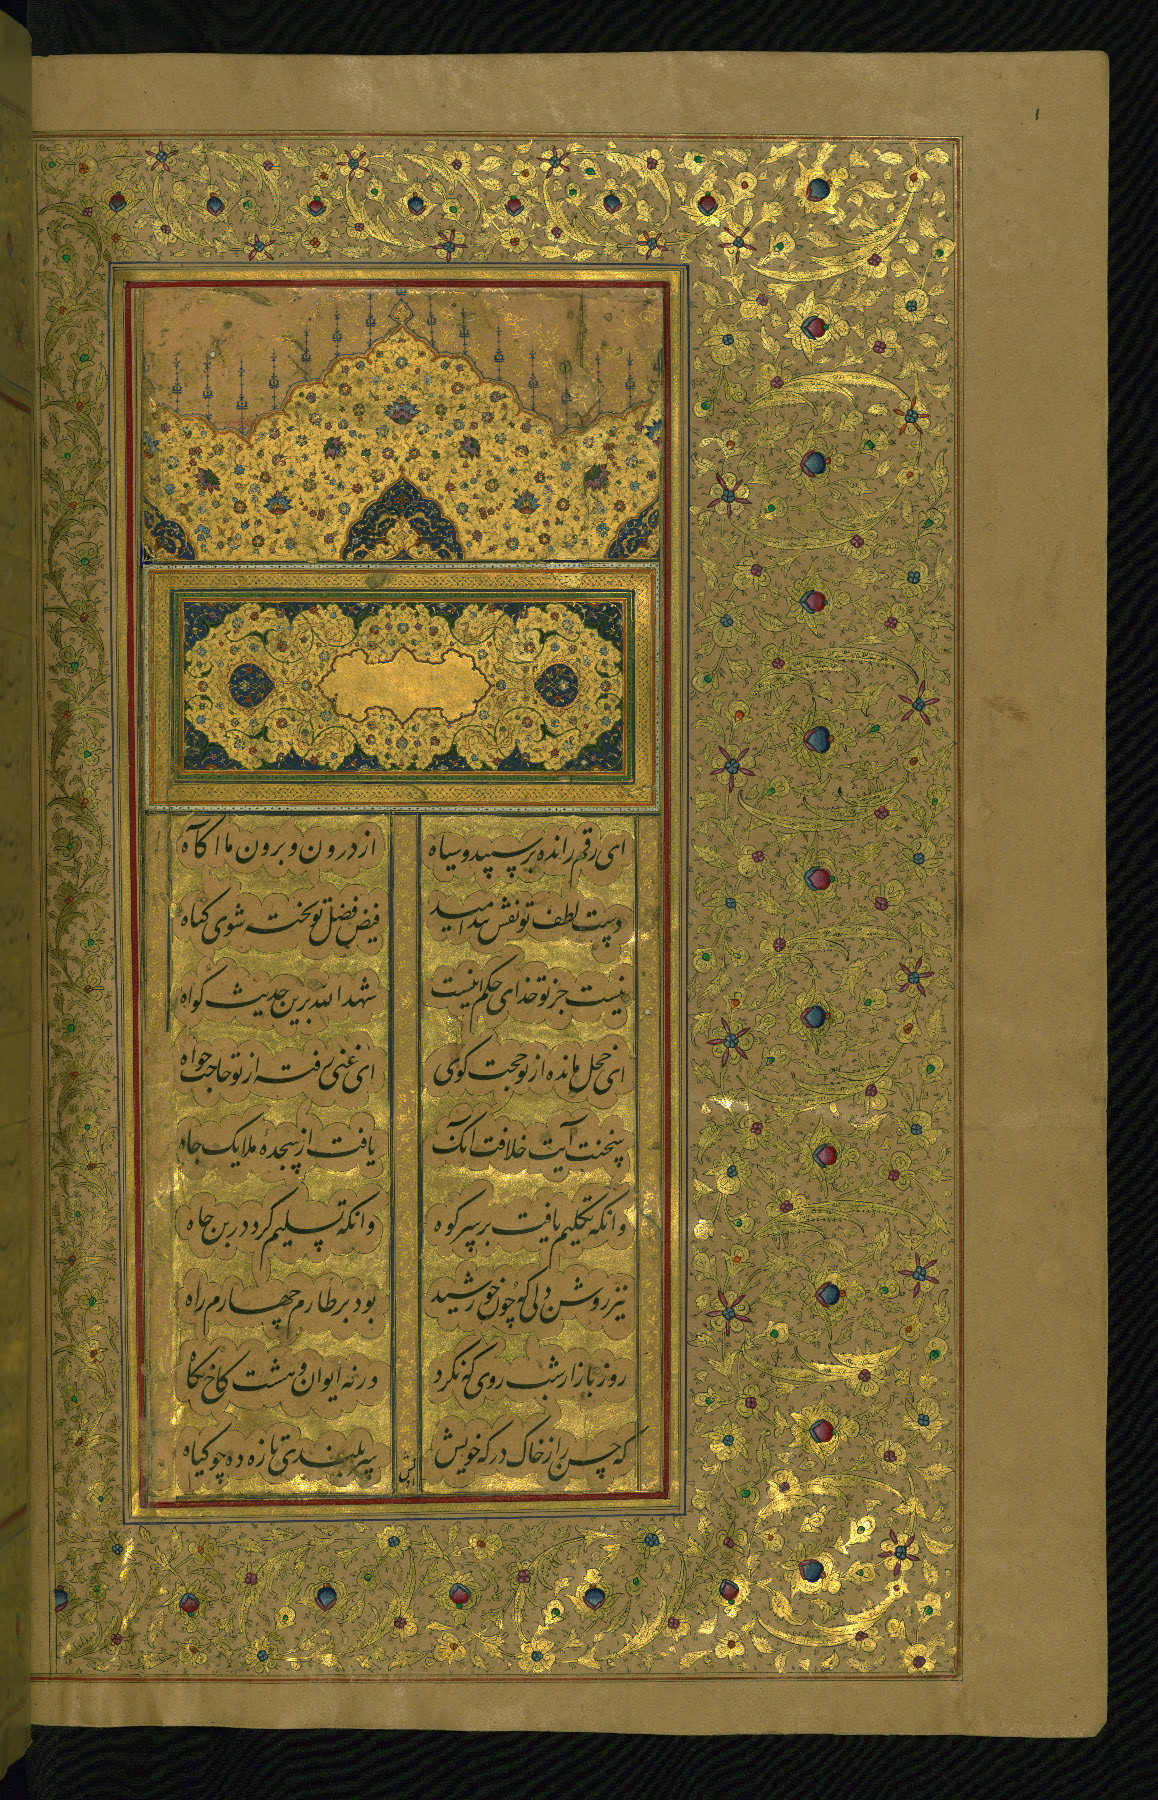 ۱
ای رقم رانده بر سپید و سیاه
از درون و برون ما آگاه
دست لطف تو نقش بند امید
فیض فضل تو تخته شوی گناه
نیست جز تو خدای حکم اینست
شهد الله برین حدیث گواه
ای خجل مانده از تو حجت گوی
ای غنی رفته از تو حاجت خواه
آیت خلافت آنک
یافت از سجده ملایک جاه
وانکه تکلیم یافت بر سر کوه
وانکه تسلیم کرد در بن چاه
نیز روشن دلی کو چون خورشید
بود بر طارم چهارم راه
روز بازار شب روی که نکرد
در نه ایوان و هشت کاخ نگاه
که حسن را ز خاک درگه خویش
سربلندی تازه ده چو گیاه